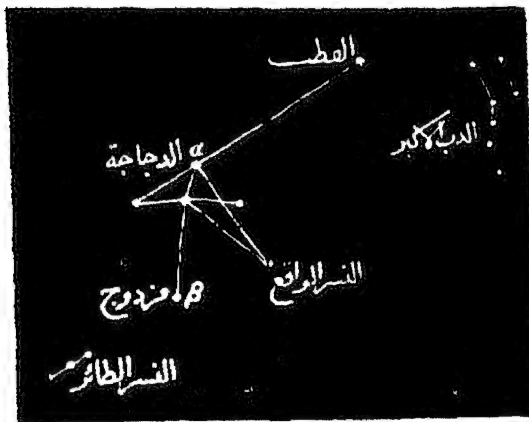 القطب
الدب الأكبر
α الدجاجة
النسر الواقع
β مزدوج
النسر الطائر